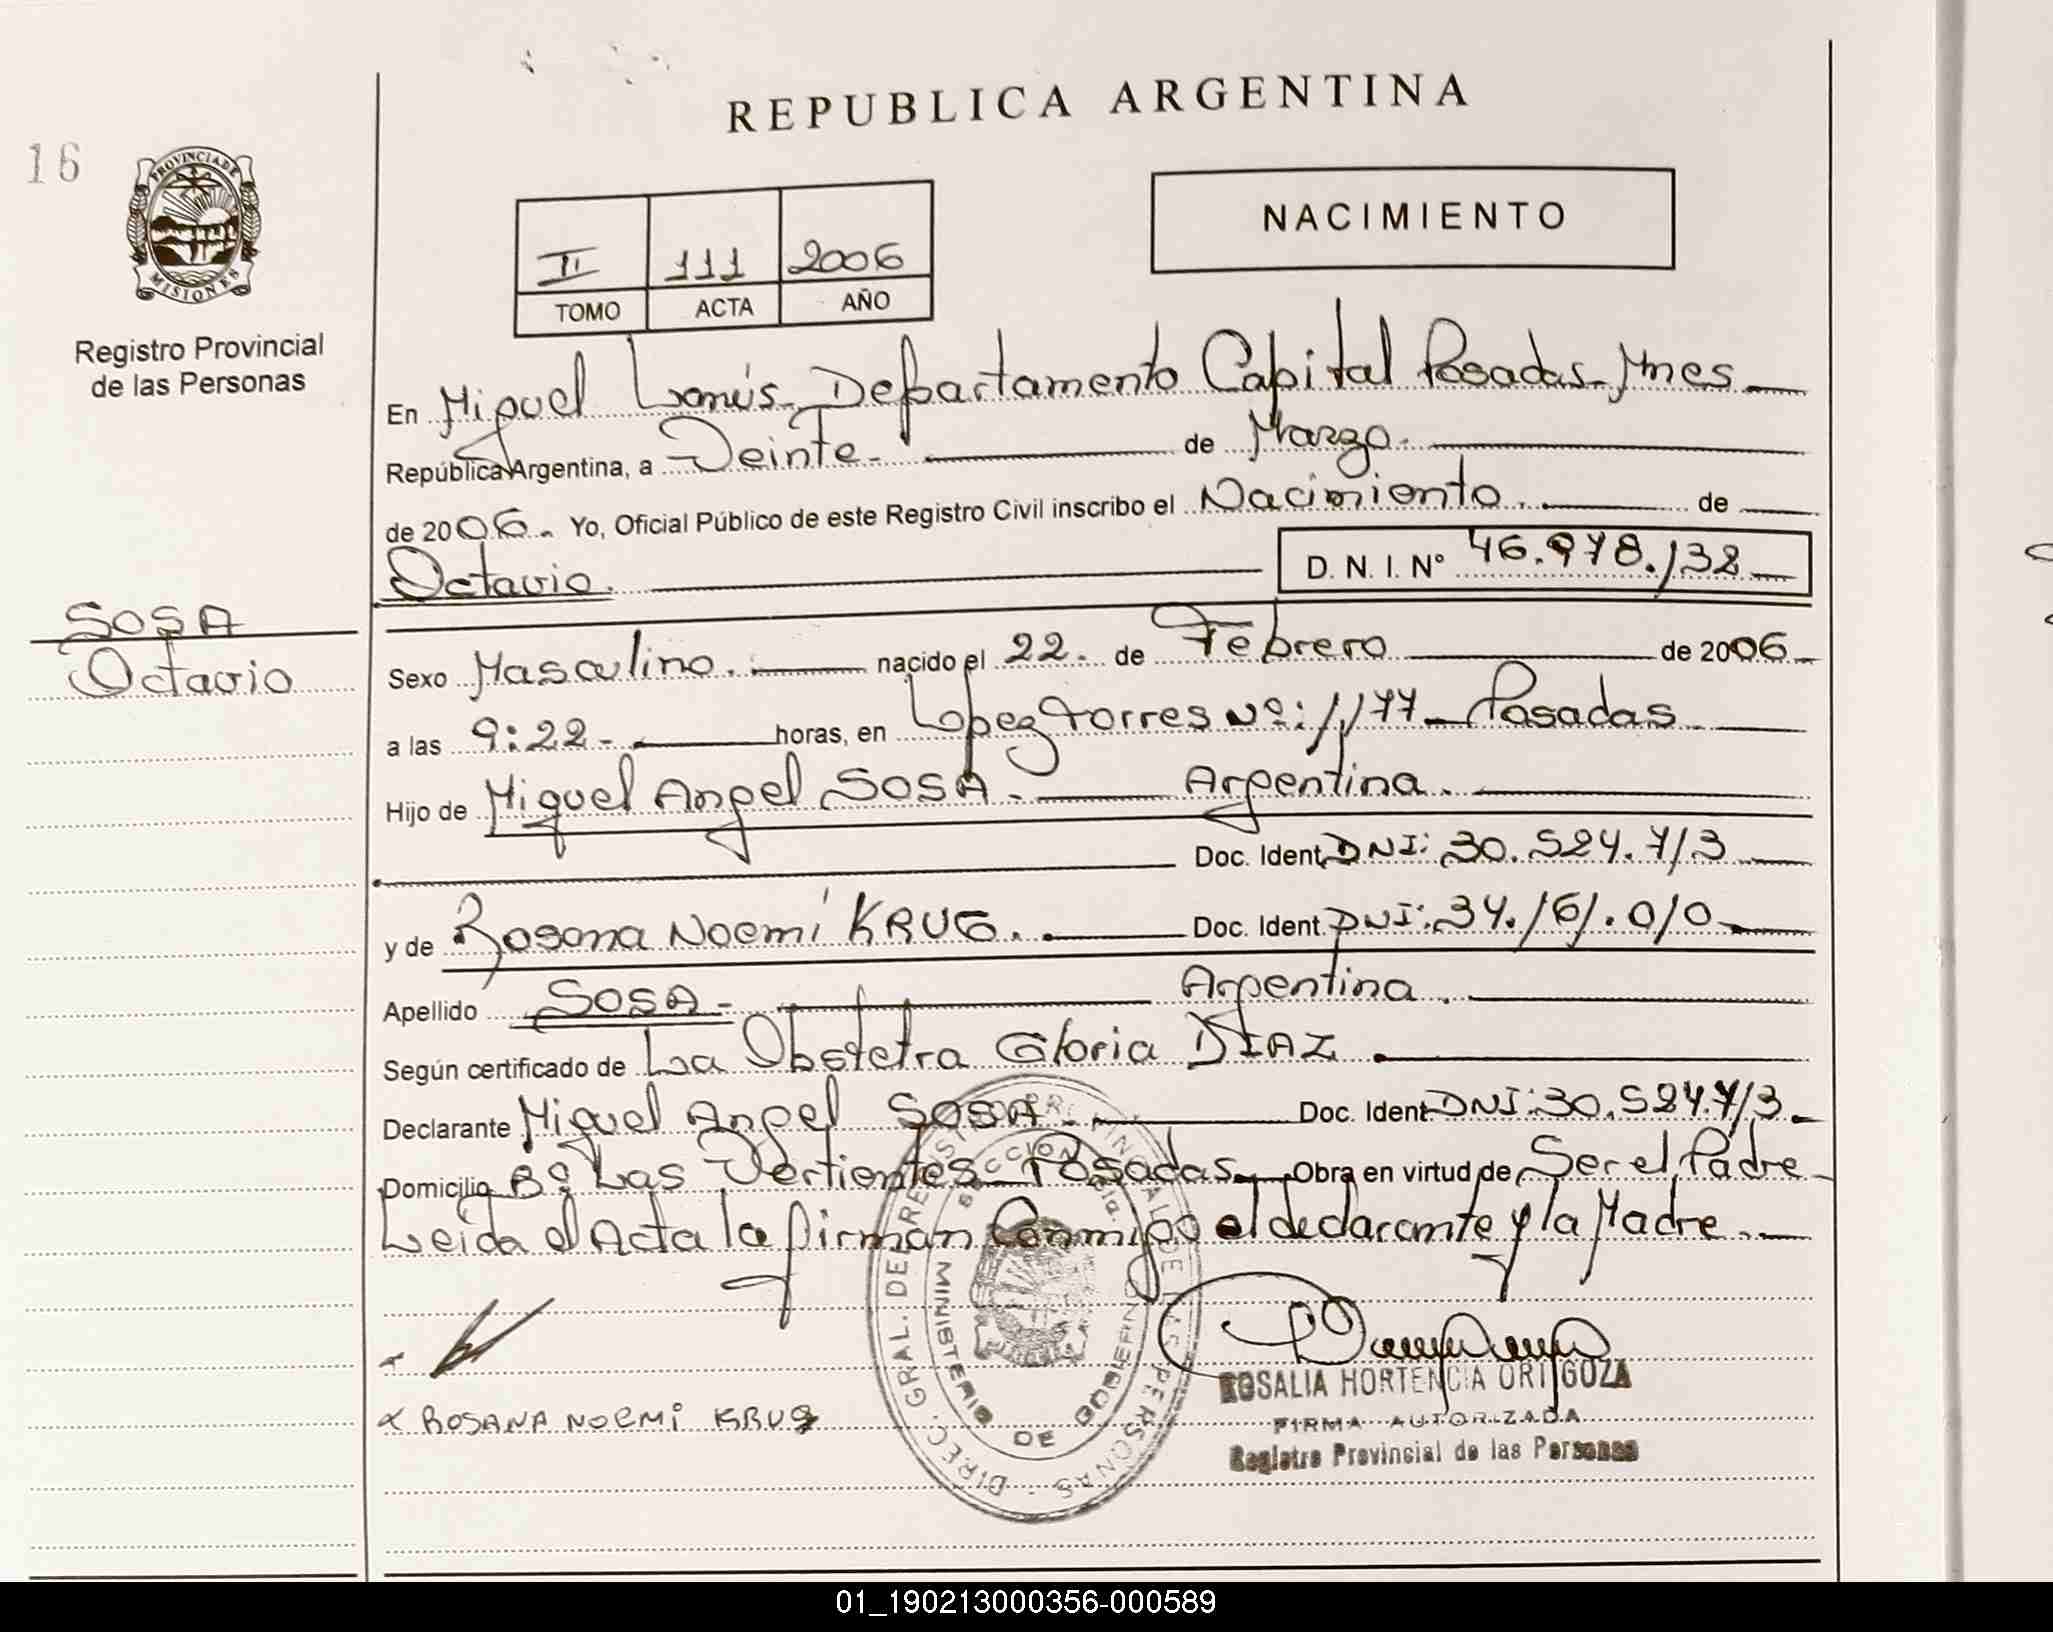 REPUBLICA ARGENTINA
16
PROVINCIA DE
MISIONES
Registro Provincial
de las Personas
NACIMIENTO
II 111 2006
TOMO ACTA AÑO
En Miguel Lanús. Departamento Capital Posadas-Mnes
República Argentina, a Veinte. de Marzo.
de 2006. Yo, Oficial Público de este Registro Civil inscribo el Nacimiento. de
Octavio. D. N. I. Nº 46.978.132
SOSA
Octavio
Sexo Masculino. nacido el 22. de Febrero de 2006
a las 9:22. horas, en Lopez Torres Nº: 1,177 Posadas
Hijo de Miguel Angel SOSA. Argentina.
Doc. Ident. DNI: 30.524.713
y de Rosana Noemí KRUG. Doc. Ident. DNI: 34.161.010
Apellido SOSA- Argentina.
Según certificado de La Obstetra Gloria DIAZ
Declarante Miguel Angel SOSA. Doc. Ident. DNI: 30.524.713
Domicilio Bº Las Vertientes Posadas Obra en virtud de Ser el Padre
Leida el Acta la firman Conmigo el declarante y la Madre.
DIREC. GRAL. DEL REGISTRO PROVINCIAL DE LAS PERSONAS
MINISTERIO DE GOBIERNO
ROSALIA HORTENCIA ORTIGOZA
x ROSANA NOEMI KRUG
FIRMA AUTORIZADA
Registro Provincial de las Personas
01_190213000356-000589